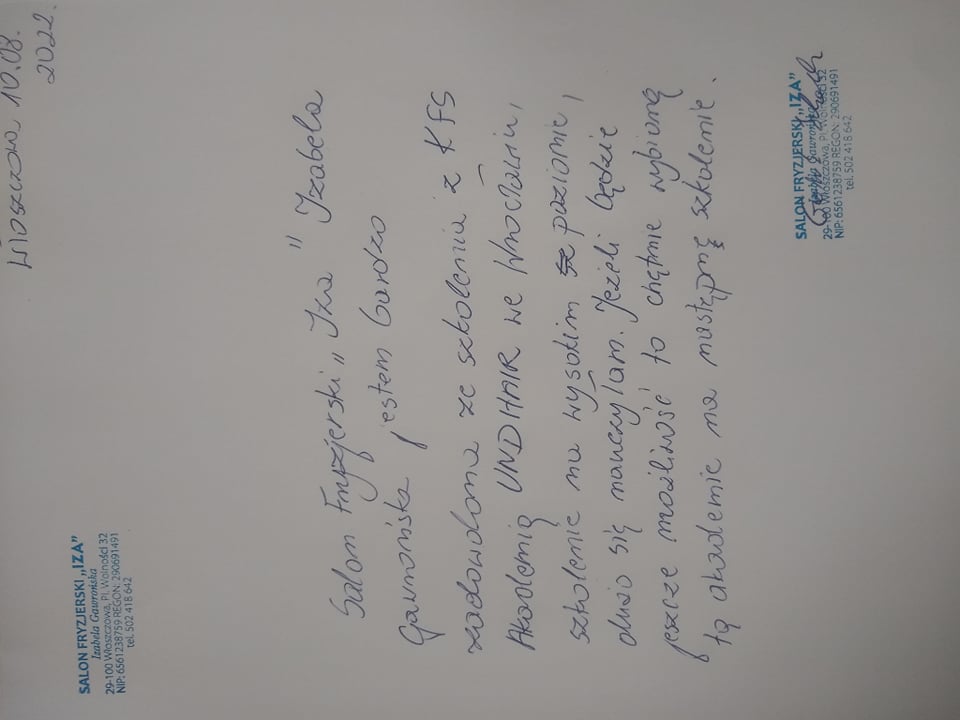 Włoszczowa, 10.08.
2022.
SALON FRYZJERSKI „IZA”
Izabela Gawrońska
29-100 Włoszczowa, Pl. Wolności 32
NIP: 6561238759 REGON: 290691491
tel. 502 418 642
Salon Fryzjerski „Iza" Izabela
Gawrońska jestem bardzo
zadowolona ze szkolenia z KFS
Akademią UNDHAIR we Wrocławiu,
szkolenie na wysokim poziomie,
dużo się nauczyłam. Jeżeli będzie
jeszcze możliwość to chętnie wybiorą
tą akademie na następnę szkolenie.
SALON FRYZJERSKI „IZA”
Izabela Gawrońska
29-100 Włoszczowa, Pl. Wolności 32
NIP: 6561238759 REGON: 290691491
tel. 502 418 642